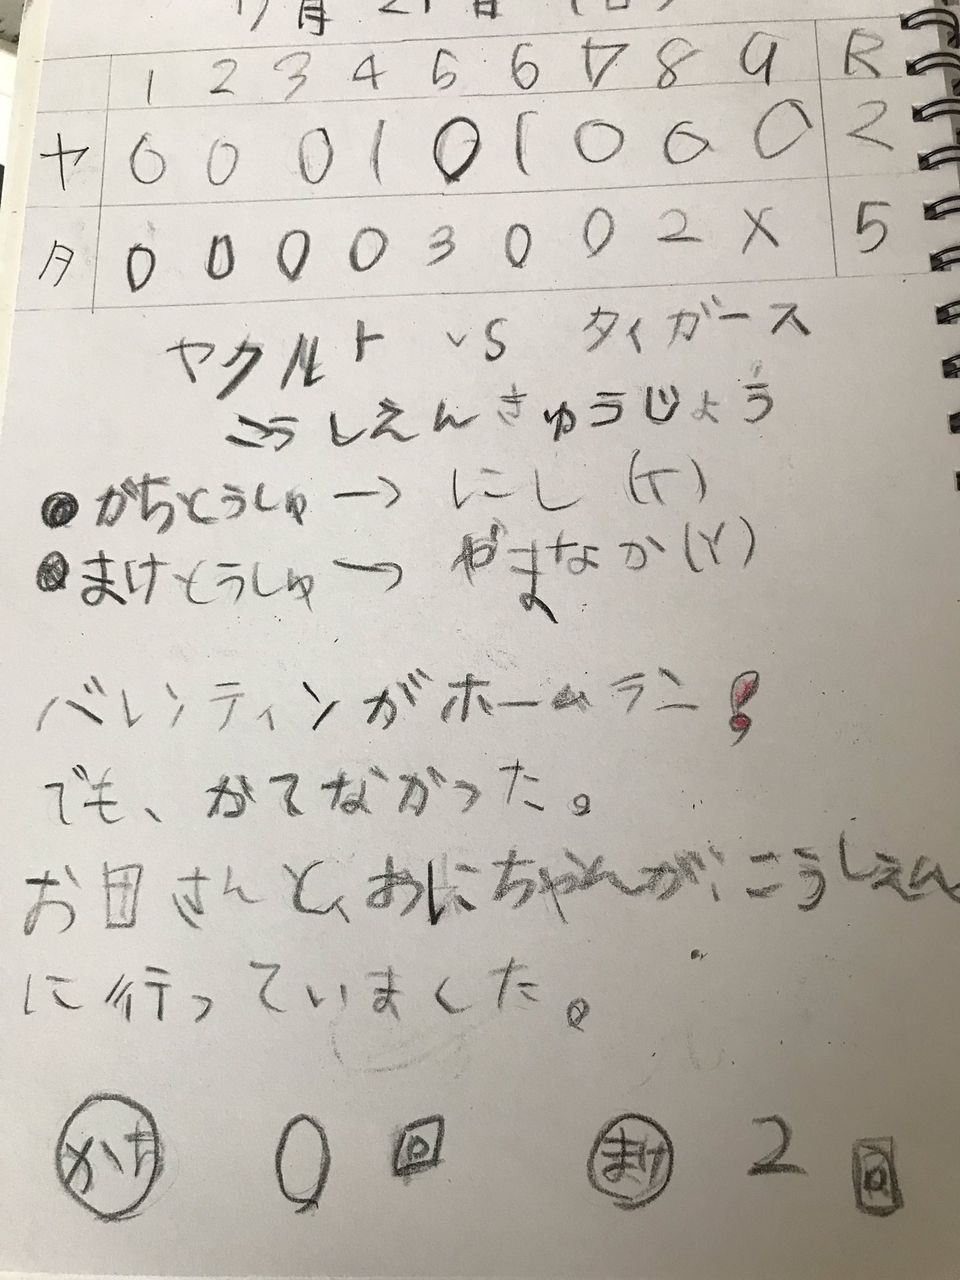 月21日
1 2 3 4 5 6 7 8 9 R
ヤ 0 0 0 1 0 1 0 0 0 2
タ 0 0 0 0 3 0 0 2 X 5
ヤクルト VS タイガース
こうしえんきゅうじょう
●がちとうしゅ→ にし(T)
●まけとうしゅ→ やまなか(Y)
バレンティンがホームラン!
でも、かてなかった。
お母さんと、おにちゃんが、こうしえん
に行っていました。
かち 0回 まけ 2回